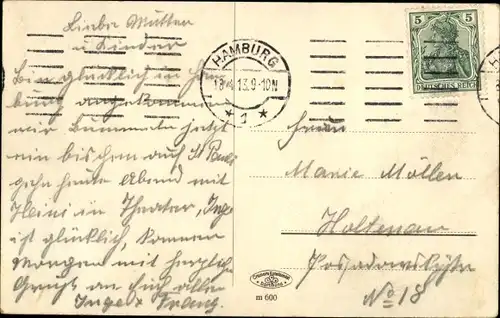 Liebe Mutter
u Kinder
Bin glücklich in Ham
burg angekommen
wir bummeln jetzt
ein bischen auf St Pauli
gehn heute Abend mit
Heini in Theater, Inge
ist glücklich, kommen
morgen mit herzlichen
Gruß an Euch allen
Inge u Franz.
HAMBURG
13.9-10N
* 1 *
5 5
DEUTSCHES REICH
Frau
Marie Möllen
Holtenau
No 18
m 600